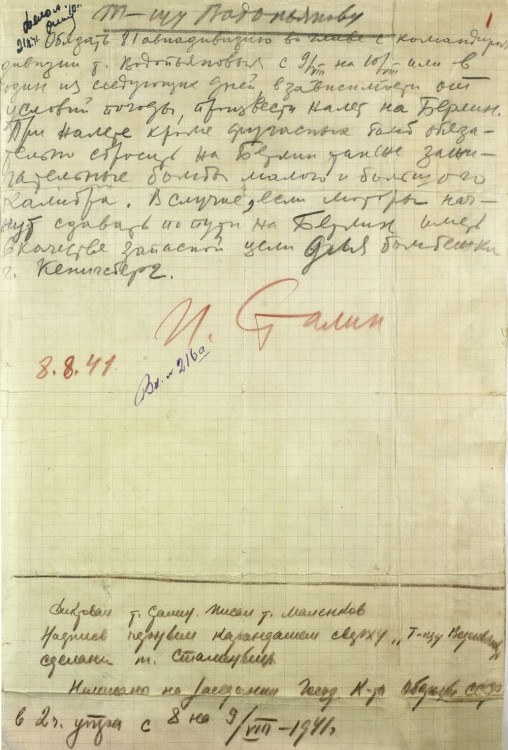 1
Т-щу Водопьянову
Обязать 81 авиадивизию во главе с командиром
дивизии т. Водопьяновым с 9/VIII на 10/VIII или в
один из следующих дней, в зависимости от
условий погоды, произвести налет на Берлин.
При налете кроме фугасных бомб обяза-
тельно сбросить на Берлин также зажи-
гательные бомбы малого и большого
калибра. В случае, если моторы нач-
нут сдавать по пути на Берлин иметь
в качестве запасной цели для бомбежки
г. Кенигсберг.
И. Сталин
8.8.41
Вх. № 216а
т. Сталин. Писал т. Маленков
Надпись карандашем сверху „Т-щу
сделана т. Сталиным.
Написано на заседании Госуд. К-та Обороны СССР
в 2 ч. утра с 8 на 9/VIII–1941г.